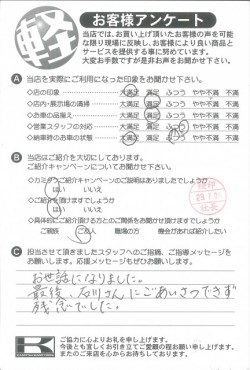 軽
お客様アンケート
当店では、お買い上げ頂いたお客様の声を可能
な限り現場に反映し、お客様により良い商品と
サービスを提供する事に努めています。
大変お手数ですが是非お声をお聞かせ下さい。
A 当店を実際にご利用になった印象をお聞かせ下さい。
◇店の印象 大満足 満足 ふつう やや不満 不満
◇店内・展示場の清掃 大満足 満足 ふつう やや不満 不満
◇お車の品揃え 大満足 満足 ふつう やや不満 不満
◇営業スタッフの対応 大満足 満足 ふつう やや不満 不満
◇納車時のお車の状態 大満足 満足 ふつう やや不満 不満
B 当店はご紹介を大切にしております。
ご紹介キャンペーンについてお聞かせ下さい。
ご紹介キャンペーンのご説明はありましたでしょうか
はい いいえ
◇ご紹介を頂けますでしょうか
はい いいえ
◇具体的にご紹介頂ける方とのご関係をお聞かせ頂けますでしょうか
ご親族 ご友人 職場の方 機会があれば紹介したい
C 担当させて頂きましたスタッフへのご指摘、ご指導メッセージを
お願いします。応援メッセージもぜひお願いします。
お世話になりました。
最後、石川さんにごあいさつできず
残念でした。
K
ご協力に心よりお礼を申し上げます。
今後とも宜しくお引き立てご愛顧の程お願い申し上げます。
またのご来店を心からお待ちしております。